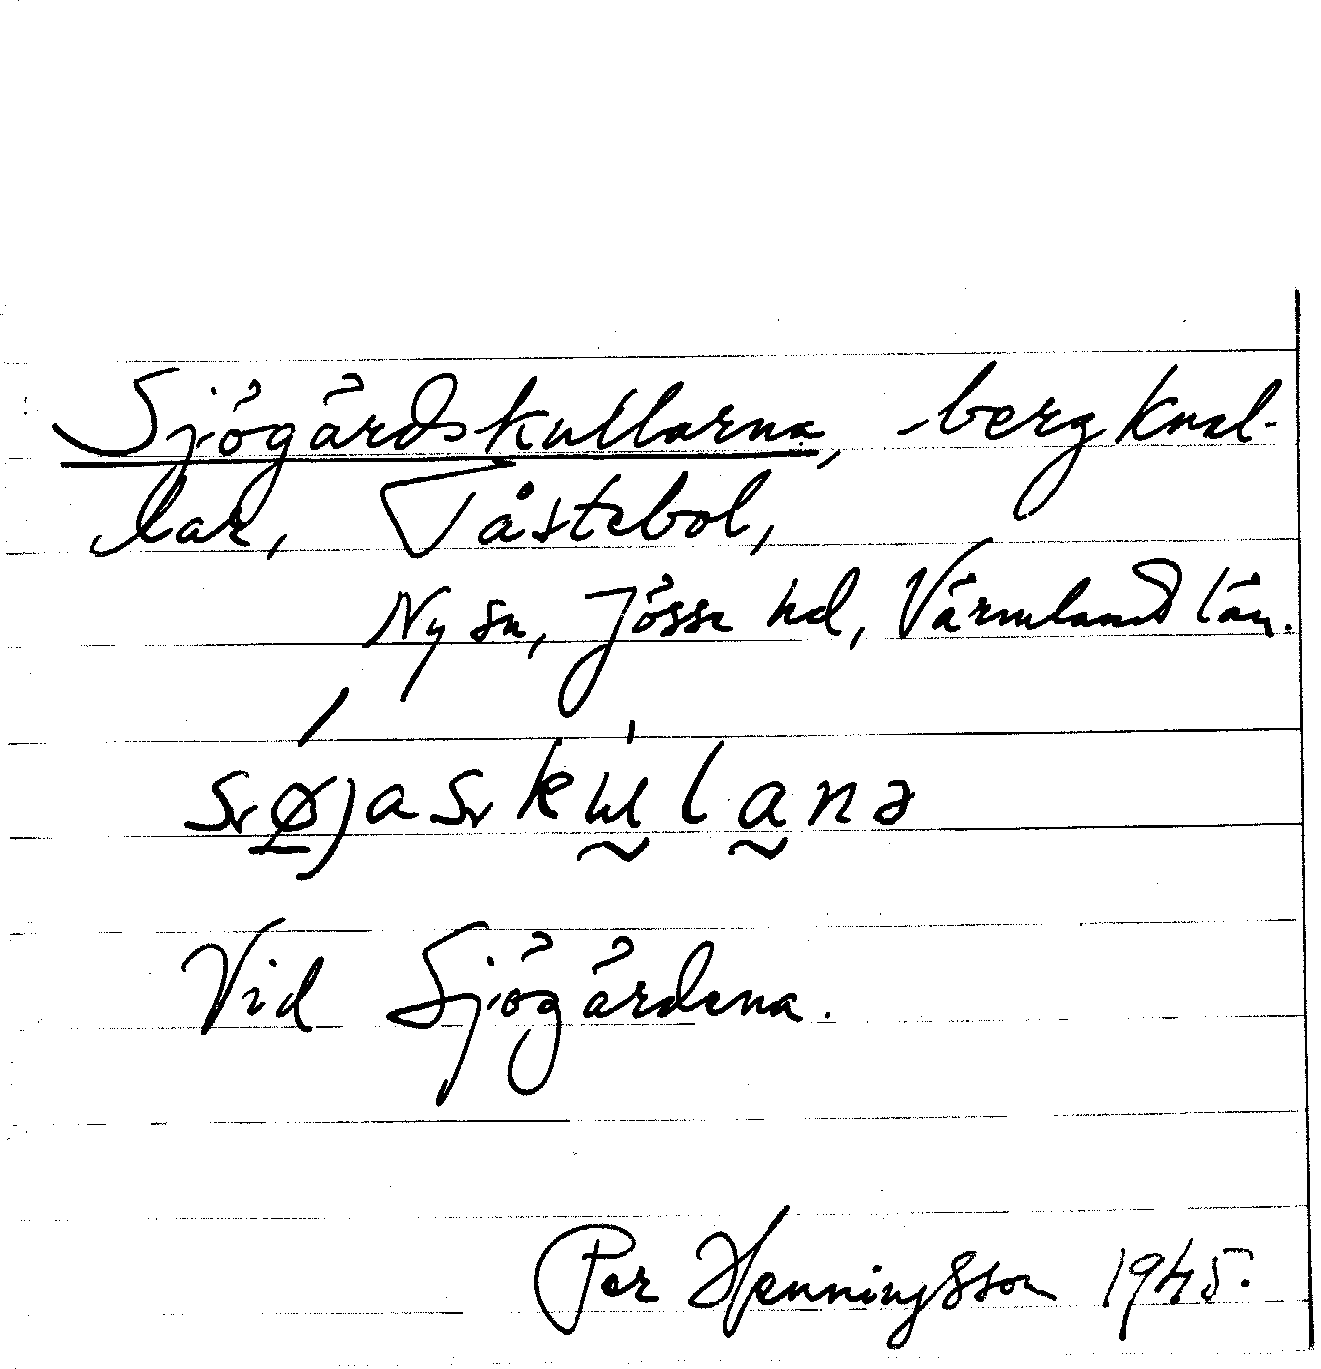 Sjögårdskullarna, bergknal-
lar, Tåstebol,
Ny sn, Jösse hd, Värmlands län.
Vid Sjögårdena.
Per Henningsson 1945.